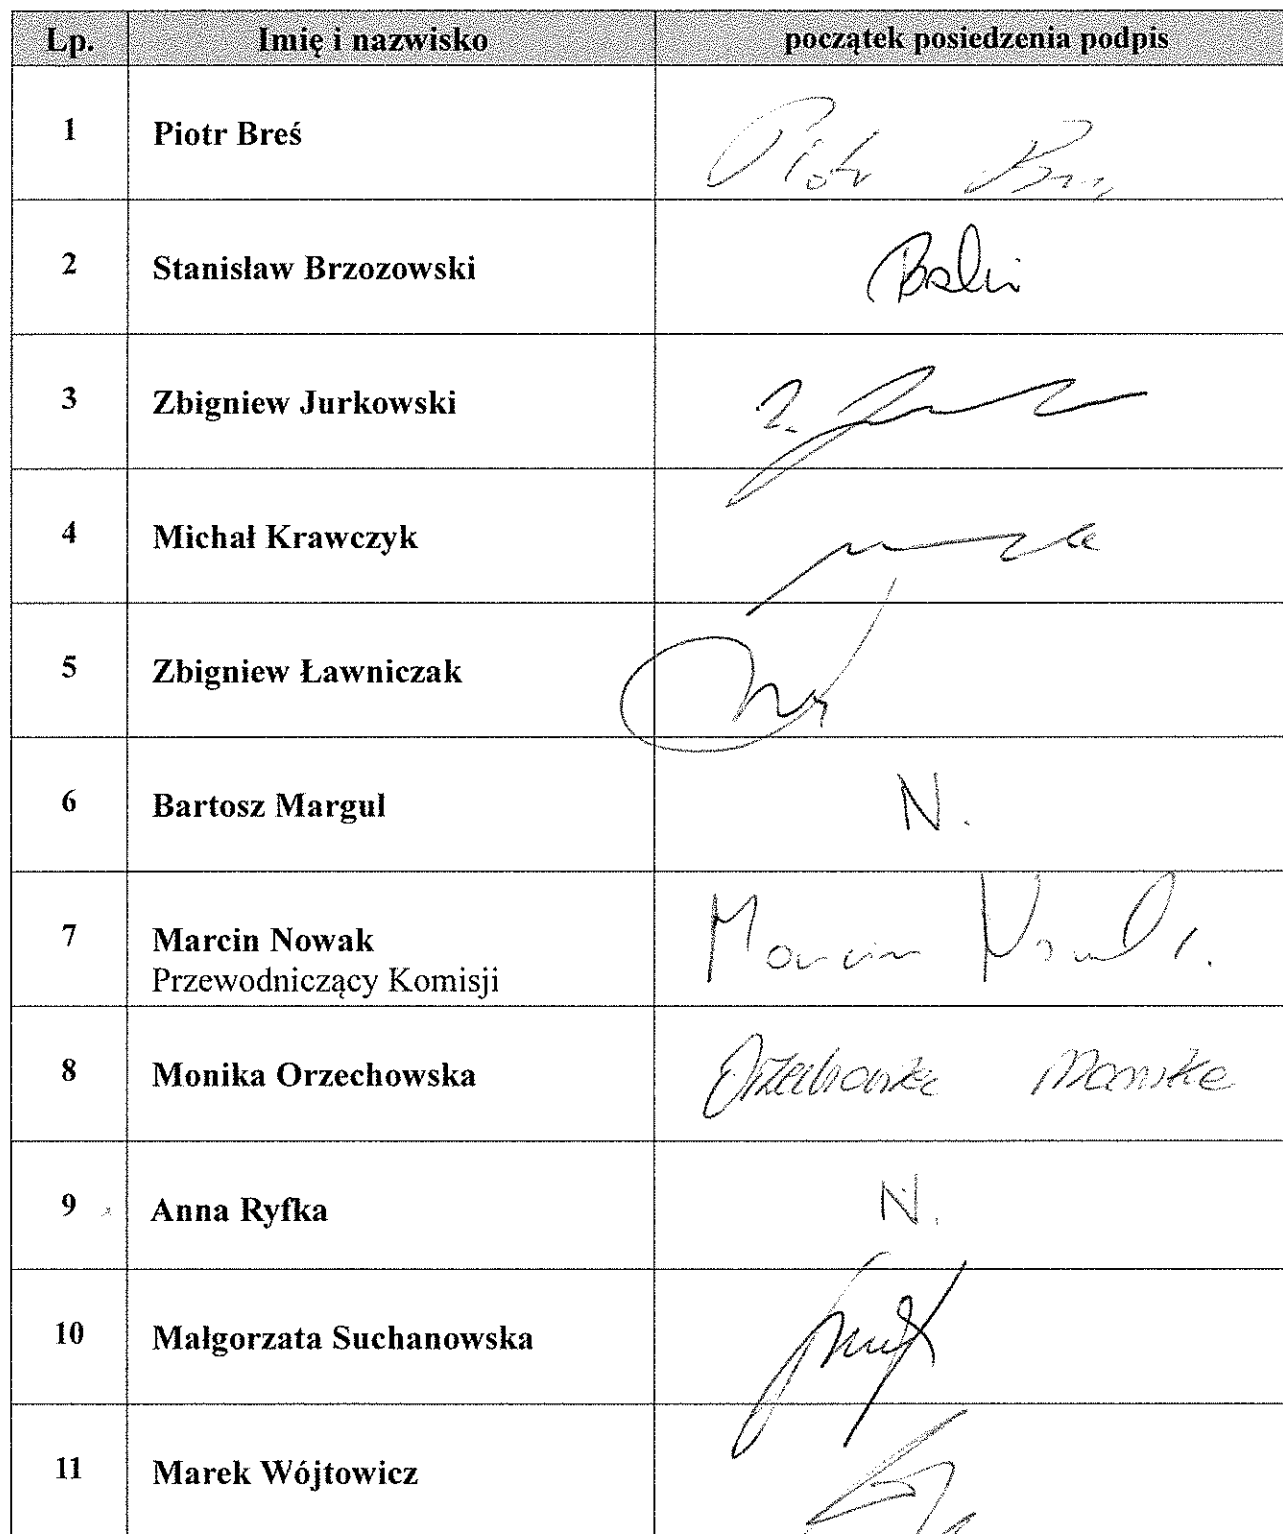 Lp. Imię i nazwisko początek posiedzenia podpis
1 Piotr Breś Piotr
2 Stanisław Brzozowski
3 Zbigniew Jurkowski
4 Michał Krawczyk
5 Zbigniew Ławniczak
6 Bartosz Margul N.
7 Marcin Nowak Marcin Nowak
Przewodniczący Komisji
8 Monika Orzechowska Orzechowska Monika
9 Anna Ryfka N.
10 Małgorzata Suchanowska
11 Marek Wójtowicz